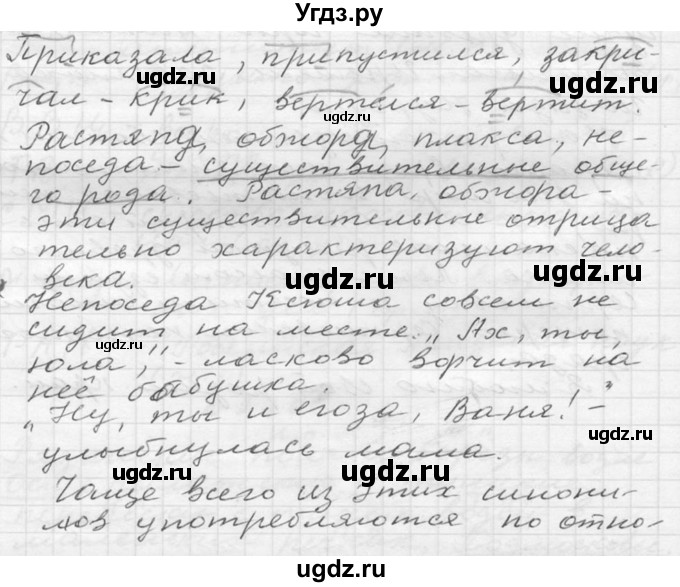 Угдз.ру
Приказала, припустился, закри-
чал - крик, вертелся - вертит.
Растяпа, обжора, плакса, не-
поседа - существительные обще-
го рода. Растяпа, обжора -
эти существительные отрица
тельно характеризуют чело-
века.
Непоседа Ксюша совсем не
сидит на месте. „Ах, ты,
юла", - ласково ворчит на
неё бабушка.
„Ну, ты и егоза, Ваня!" -
улыбнулась мама.
Чаще всего из этих синони-
мов употребляются по отно-
ugdz.ru
ugdz.ru
ugdz.ru
ugdz.ru
ugdz.ru
ugdz.ru
ugdz.ru
ugdz.ru
ugdz.ru
ugdz.ru
ugdz.ru
ugdz.ru